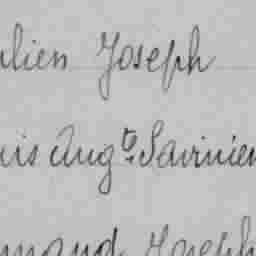 ulien Joseph
uis Augte Savinien
mand Joseph